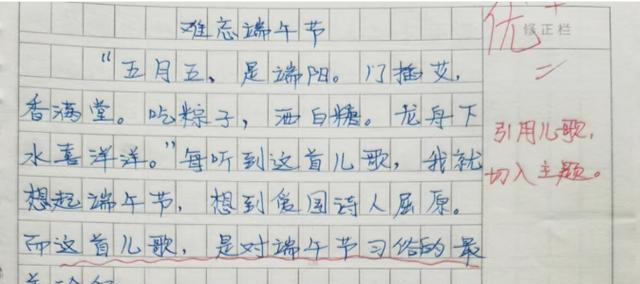 难忘端午节
优+
修正栏
“五月五、是端阳。门插艾,
香满堂。吃粽子,洒白糖。龙舟下
水喜洋洋。”每听到这首儿歌,我就
想起端午节,想到爱国诗人屈原。
而这首儿歌,是对端午节习俗的最
引用儿歌,
切入主题。